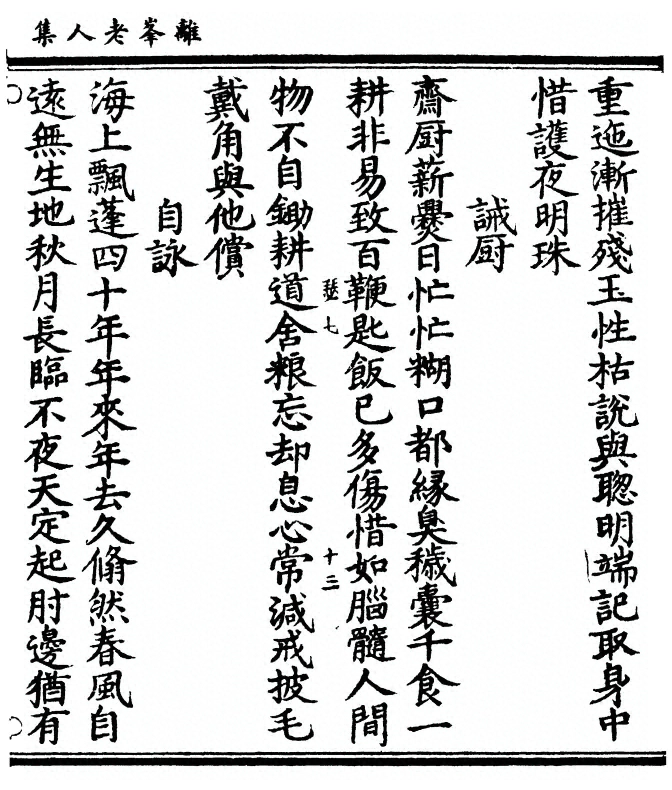 離峯老人集
重迤漸摧殘玉性枯說與聰明端記取身中
惜護夜明珠
誡厨
齋厨薪爨日忙忙糊口都緣臭穢囊千食一
耕非易致百鞭匙飯已多傷惜如腦髓人間
瑟七
十三
物不自鋤耕道舍粮忘却息心常減戒披毛
戴角與他償
自詠
海上飄蓬四十年年來年去久翛然春風自
遠無生地秋月長臨不夜天定起肘邊猶有